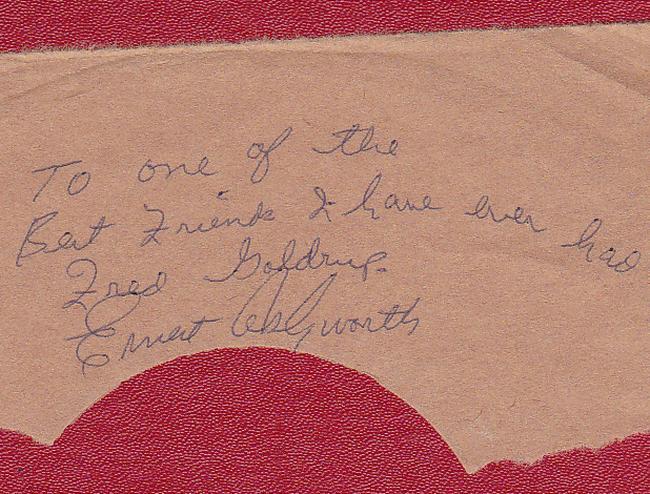 To one of the
Best Friends I have ever had
Fred Goldrup.
Ernest Ashworth